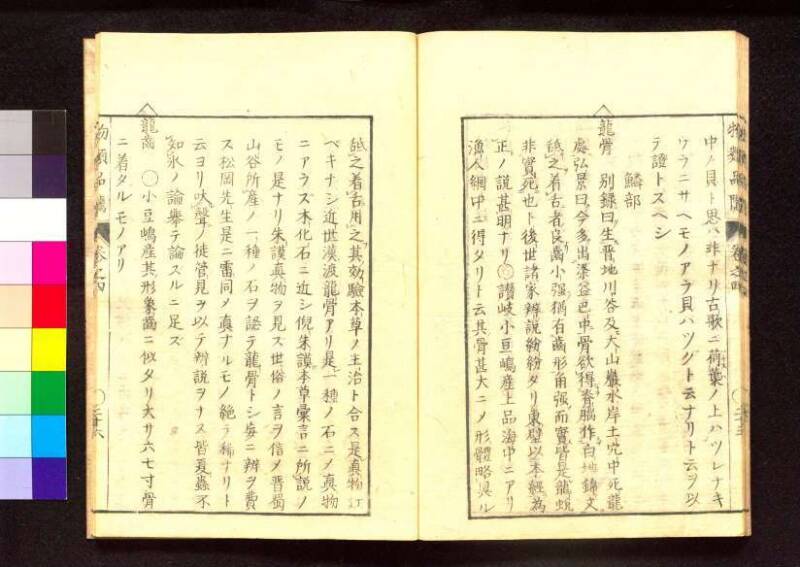 中ノ貝ト思ハ非ナリ古歌ニ荷葉ノ上ハツレナキ
ウラニサヘモノアラ貝ハツグト云ナリト云ヲ以
テ證トスヘシ
鱗部
龍骨 別録曰生晋地川谷及大山巖水岸土穴中死龍
處弘景曰今多出梁益巴中骨欲得脊腦作白地錦文
舐之着舌者良齒小强猶有齒形角强而實皆是龍蛻
非實死也ト後世諸家辨説紛紛タリ東壁以本經為
正ノ説甚明ナリ○讃岐小豆嶋産上品海中ニアリ
漁人網中ニ得タリト云其骨甚大ニメ形體略具ル
舐之着舌用之其効驗本草ノ主治ト合ス是真物
ベキナシ近世漢渡龍骨アリ是一種ノ石ニメ真物
ニアラズ木化石ニ近シ倪朱謨本草彙言ニ所説ノ
モノ是ナリ朱謨真物ヲ見ス世俗ノ言ヲ信メ晋蜀
山谷所産ノ一種ノ石ヲ認テ龍骨トシ妄ニ辨ヲ費
ス松岡先生是ニ雷同メ真ナルモノ絶テ稀ナリト
云ヨリ吠聲ノ徒管見ヲ以テ辨説ヲナス皆夏蟲不
知氷ノ論擧テ論スルニ足ズ
龍齒 ○小豆嶋産其形象齒ニ似タリ大サ六七寸骨
ニ着タルモノアリ
物類品隲 卷之四